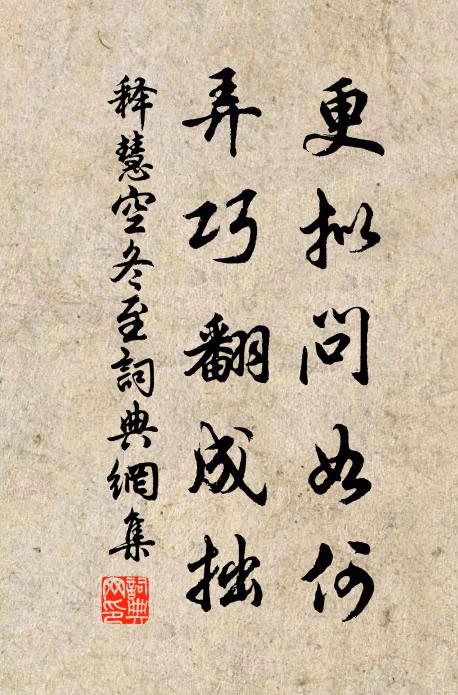 更拟问如何
弄巧翻成拙
释慧空冬至詞典網集
詞典网印